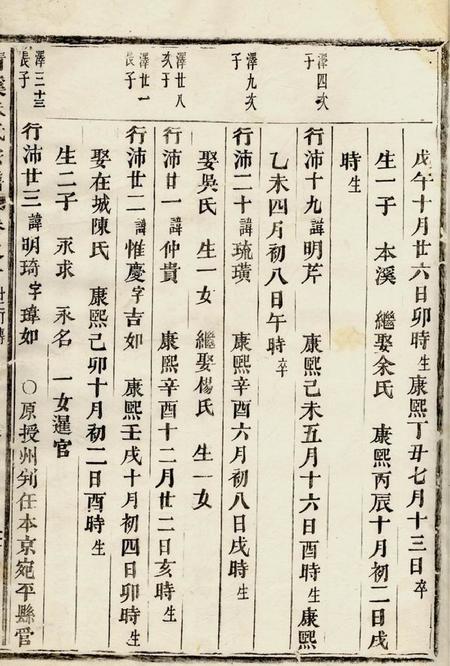 戊午十月廿六日卯時生康熙丁丑七月十三日卒
生一子 本溪 繼娶余氏 康熙丙辰十月初二日戌
時生
澤四次子
行沛十九諱明芹 康熙己未五月十六日酉時生康熙
乙未四月初八日午時卒
澤九次子
行沛二十諱琉璜 康熙辛酉六月初八日戌時生
娶吳氏 生一女 繼娶楊氏 生一女
澤廿八次子
行沛廿一諱仲貴 康熙辛酉十二月廿二日亥時生
澤廿一長子
行沛廿二諱惟慶字吉如 康熙壬戌十月初四日卯時生
娶在城陳氏 康熙己卯十月初二日酉時生
生二子 永求 永名 一女暹官
澤三十三長子
行沛廿三諱明琦字瑋如 ○原授州判任本京宛平縣官